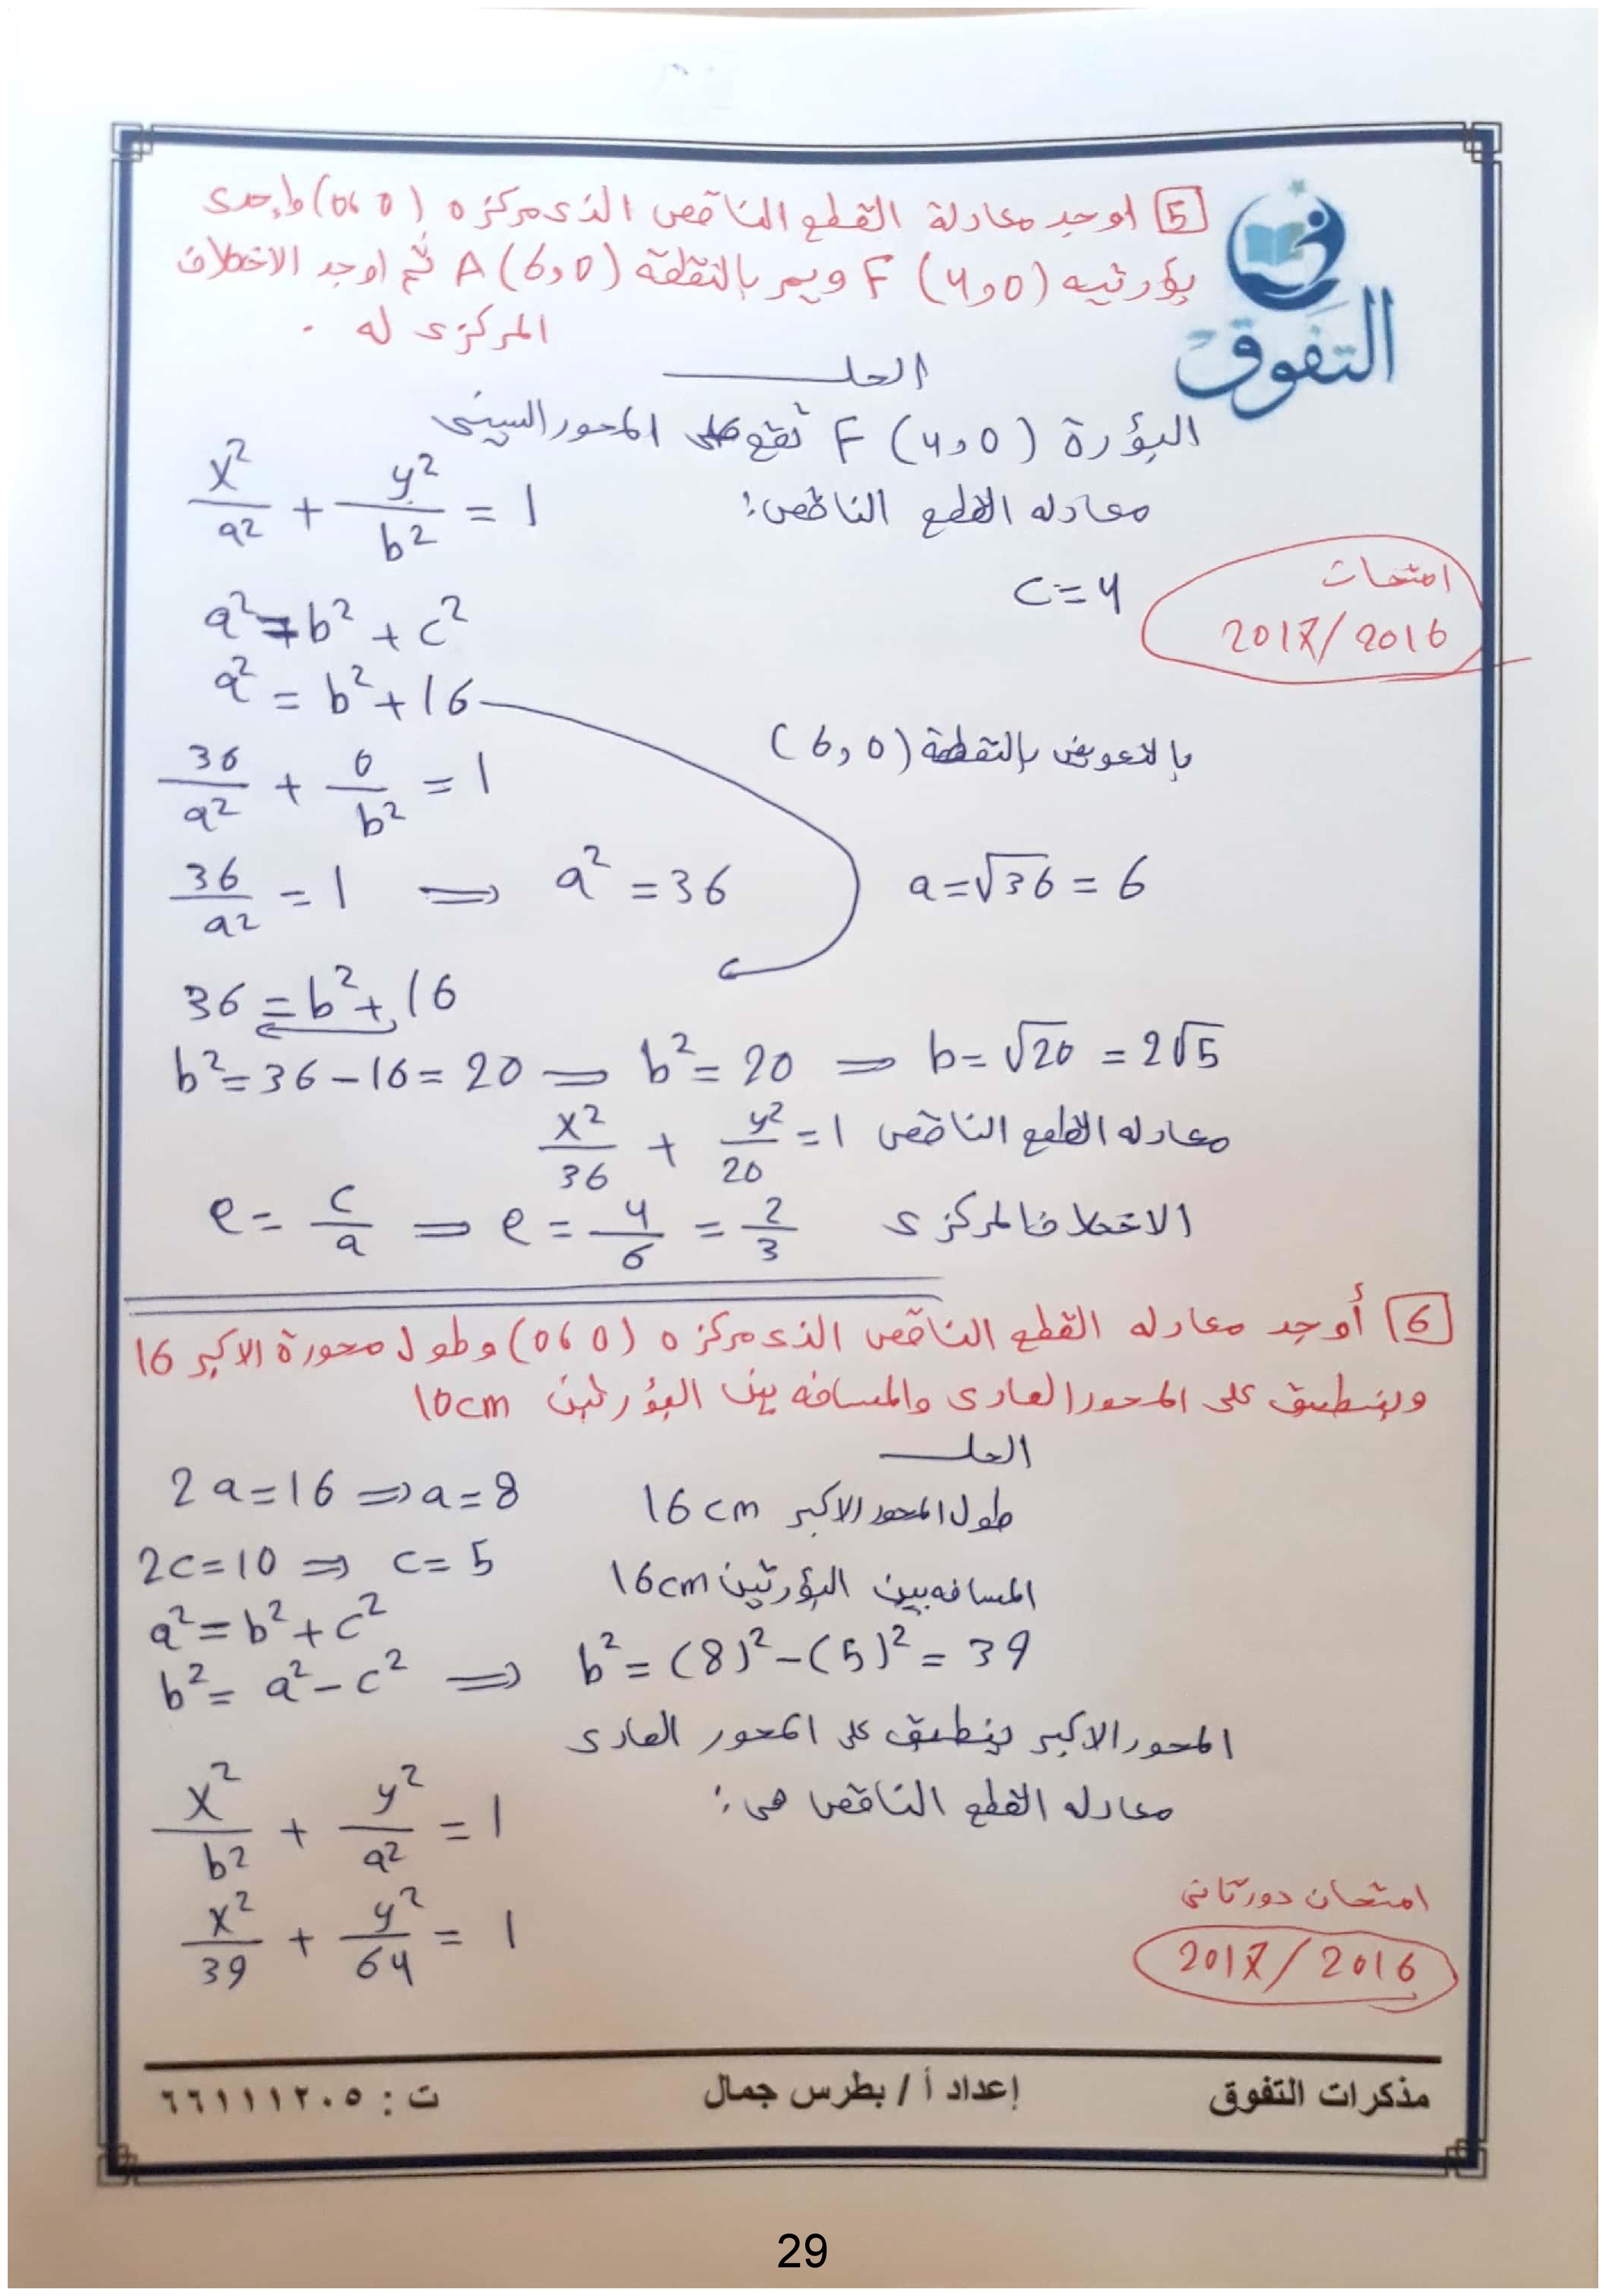 5 اوجد معادلة القطع الناقص الذى مركزه (0،0) واحدى
بؤرتيه F (4,0) ويمر بالنقطة A (6,0) ثم اوجد الاختلاف
المركزى له .
التفوق
الحل
البؤرة F (4,0) تقع على المحور السينى
معادله القطع الناقص: x²/a² + y²/b² = 1
امتحان
2017/2016
c=4
a² = b² + c²
a² = b² + 16
بالتعويض بالنقطة (6,0)
36/a² + 0/b² = 1
36/a² = 1 ⇒ a² = 36 a=√36 = 6
36 = b² + 16
b² = 36 – 16 = 20 ⇒ b² = 20 ⇒ b= √20 = 2√5
معادله القطع الناقص x²/36 + y²/20 = 1
الاختلاف المركزى e = c/a ⇒ e = 4/6 = 2/3
6 أوجد معادله القطع الناقص الذى مركزه (0،0) وطول محورة الاكبر 16
وينطبق على المحور الصادى والمسافه بين البؤرتين 10cm
الحل
طول المحور الاكبر 16cm 2a=16 ⇒ a=8
المسافه بين البؤرتين 16cm 2c=10 ⇒ c=5
a² = b² + c²
b² = a² – c² ⇒ b² = (8)² – (5)² = 39
المحور الاكبر ينطبق على المحور الصادى
معادله القطع الناقص هى: x²/b² + y²/a² = 1
x²/39 + y²/64 = 1
امتحان دور ثانى
2017/2016
مذكرات التفوق إعداد أ / بطرس جمال ت : ٦٦١١١٢٠٥
29